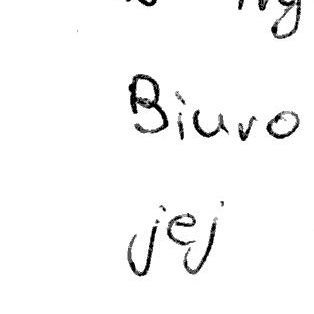 Biuro
jej